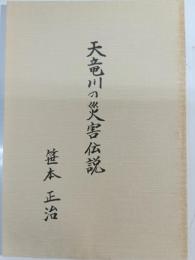 天竜川の災害伝説
笹本正治